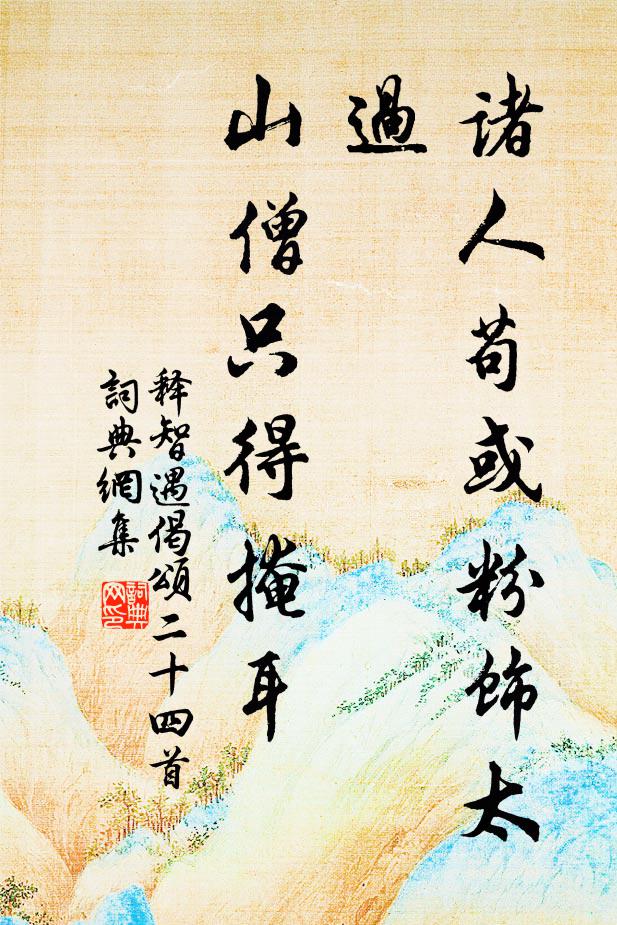 諸人苟或粉飾太
過
山僧只得掩耳
释智遇偈頌二十四首
詞典網集
詞典
文印